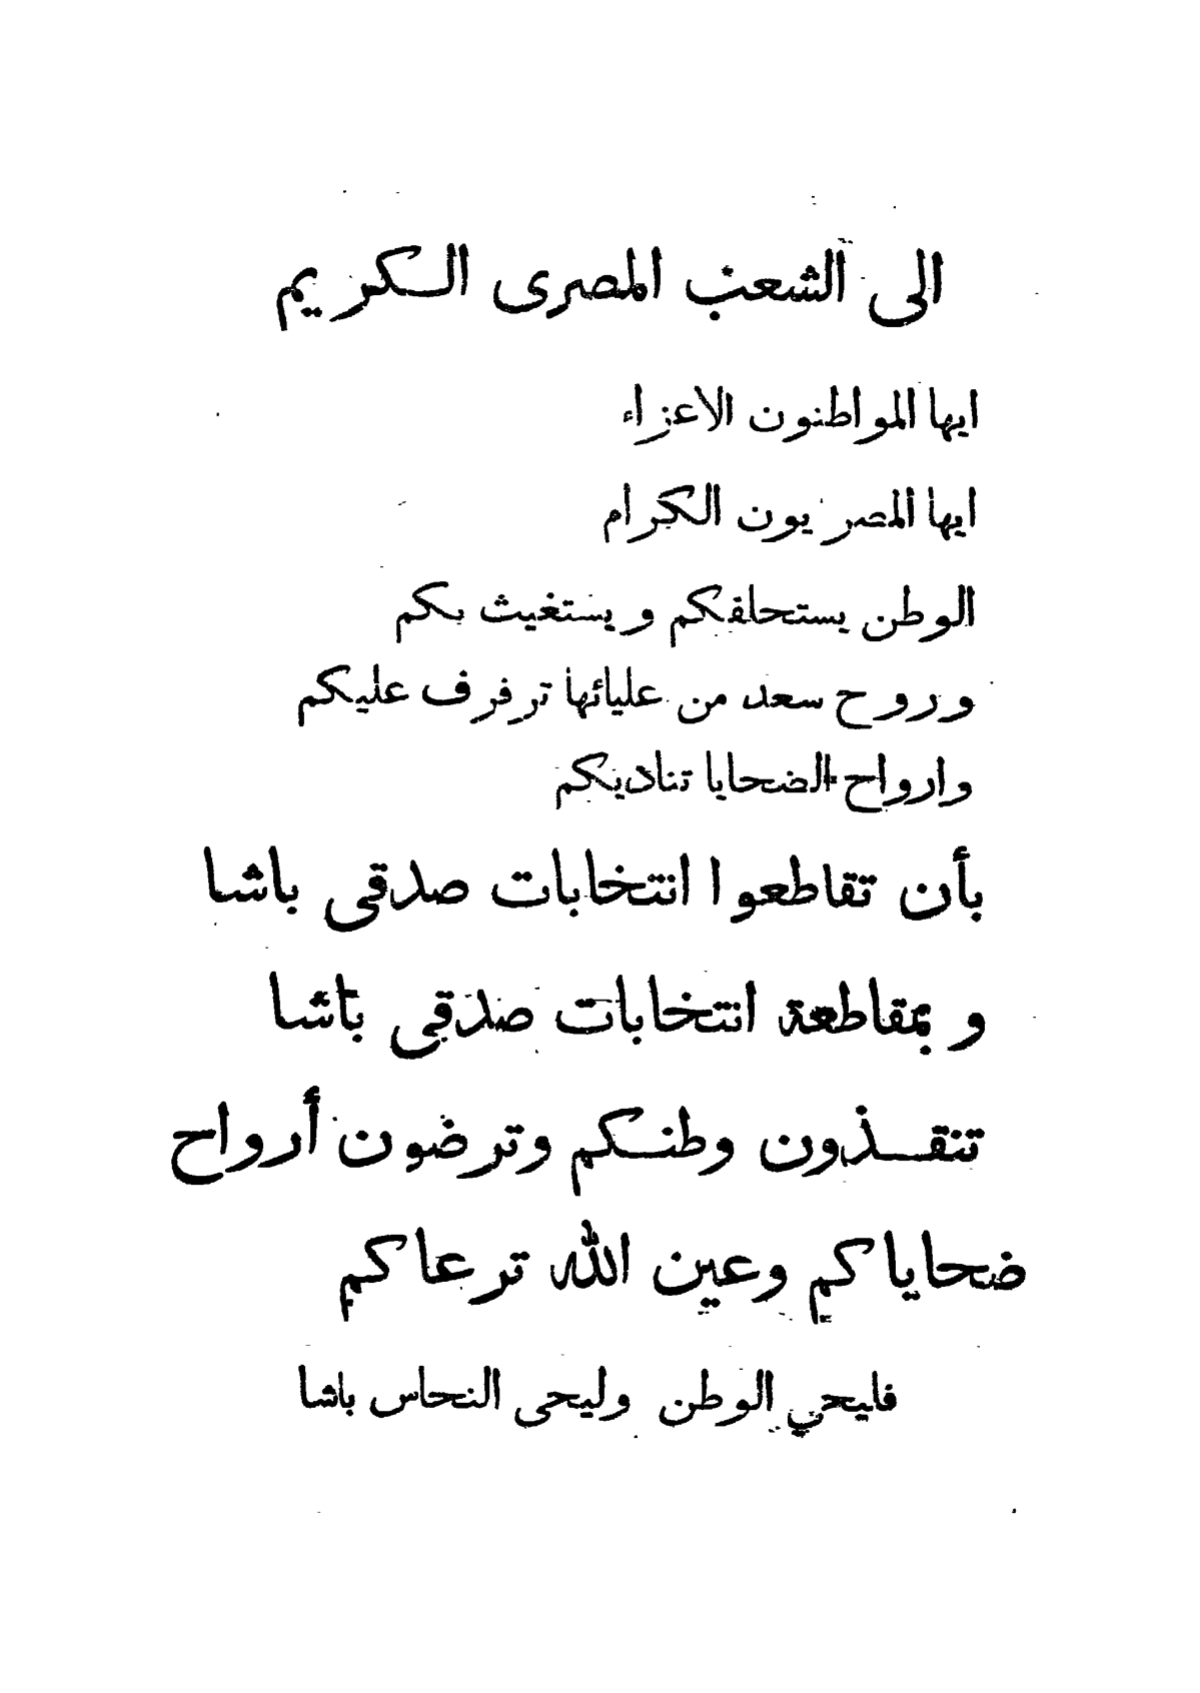 الى الشعب المصرى الكريم
ايها المواطنون الاعزاء
ايها المصريون الكرام
الوطن يستحلفكم ويستغيث بكم
وروح سعد من عليائها ترفرف عليكم
وارواح الضحايا تناديكم
بأن تقاطعوا انتخابات صدقى باشا
وبمقاطعة انتخابات صدقى باشا
تنقذون وطنكم وترضون أرواح
ضحاياكم وعين الله ترعاكم
فليحي الوطن وليحى النحاس باشا